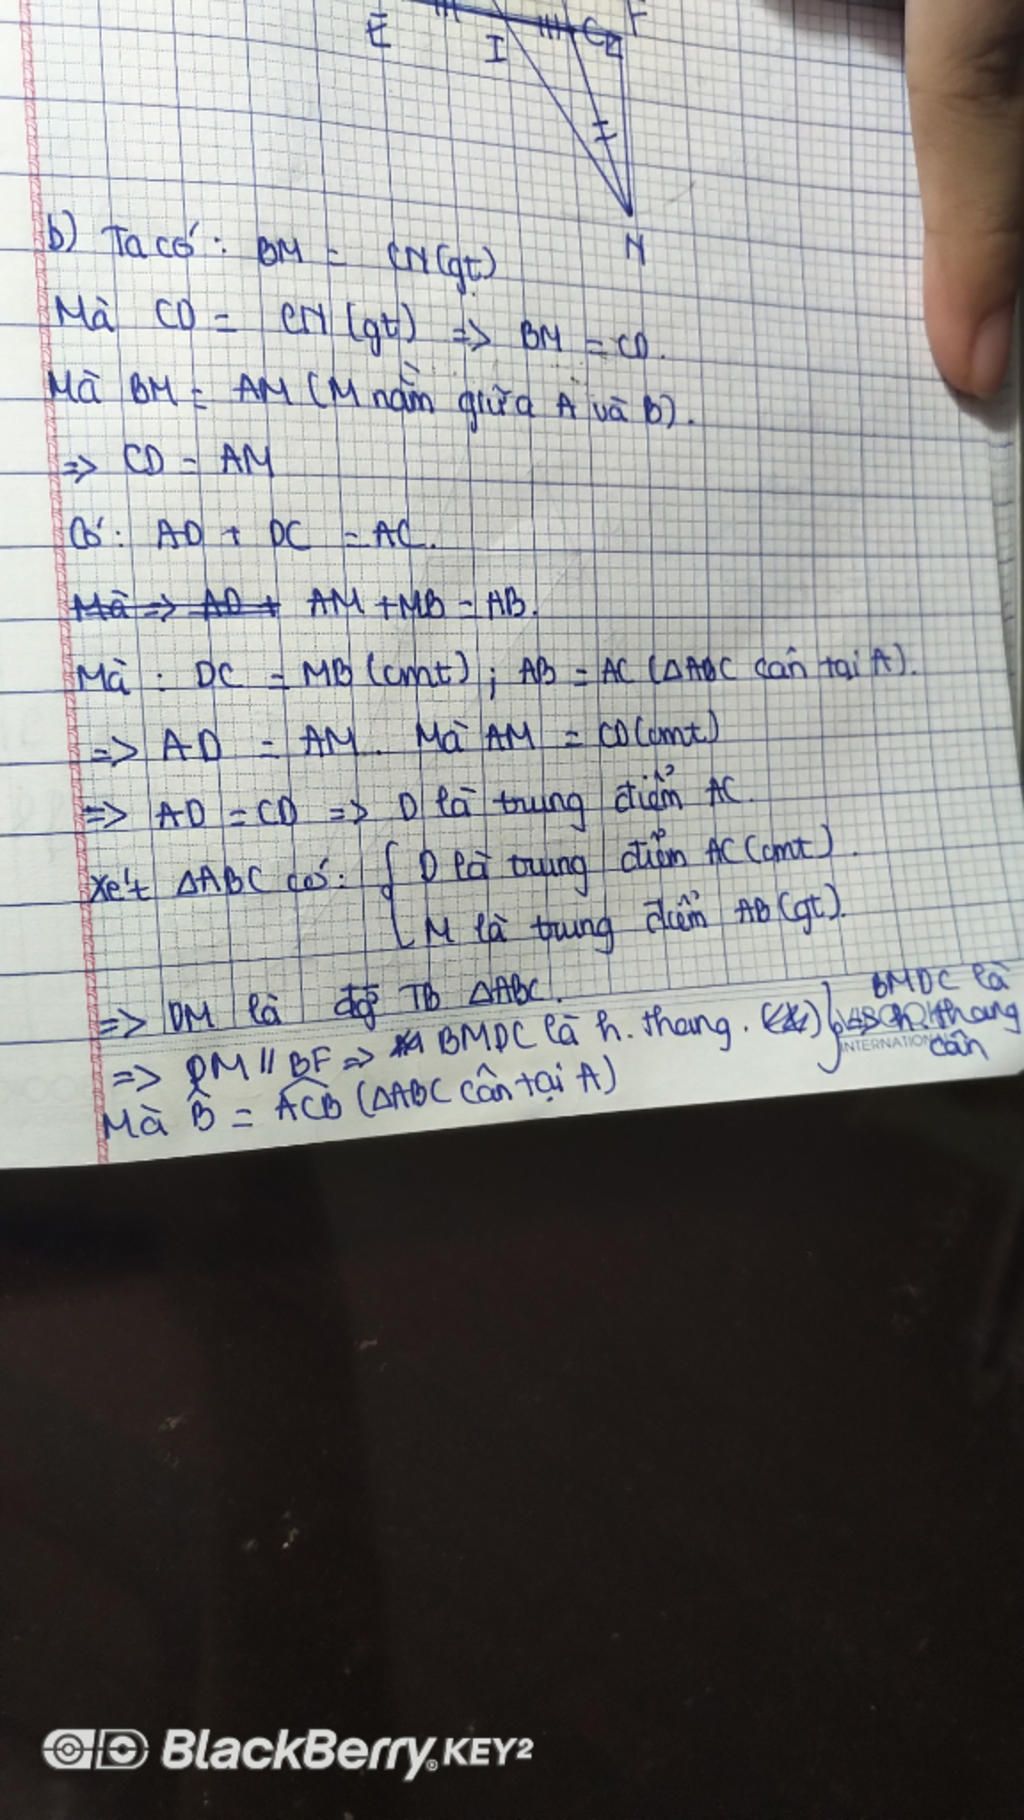 E
I
C
F
N
b) Ta có: BM = CN (gt)
Mà CD = CN (gt) => BM = CD.
Mà BM = AM (M nằm giữa A và B).
=> CD = AM
Có: AD + DC = AC.
Mà => AD + AM + MB = AB.
Mà : DC = MB (cmt) ; AB = AC (ΔABC cân tại A).
=> AD = AM. Mà AM = CD (cmt)
=> AD = CD => D là trung điểm AC.
Xét ΔABC có: { D là trung điểm AC (cmt).
M là trung điểm AB (gt).
=> DM là đg TB ΔABC.
=> DM // BF => BMDC là h. thang. (*) } BMDC là
h thang
cân
Mà B̂ = ACB (ΔABC cân tại A)
INTERNATIONAL
BlackBerry KEY2